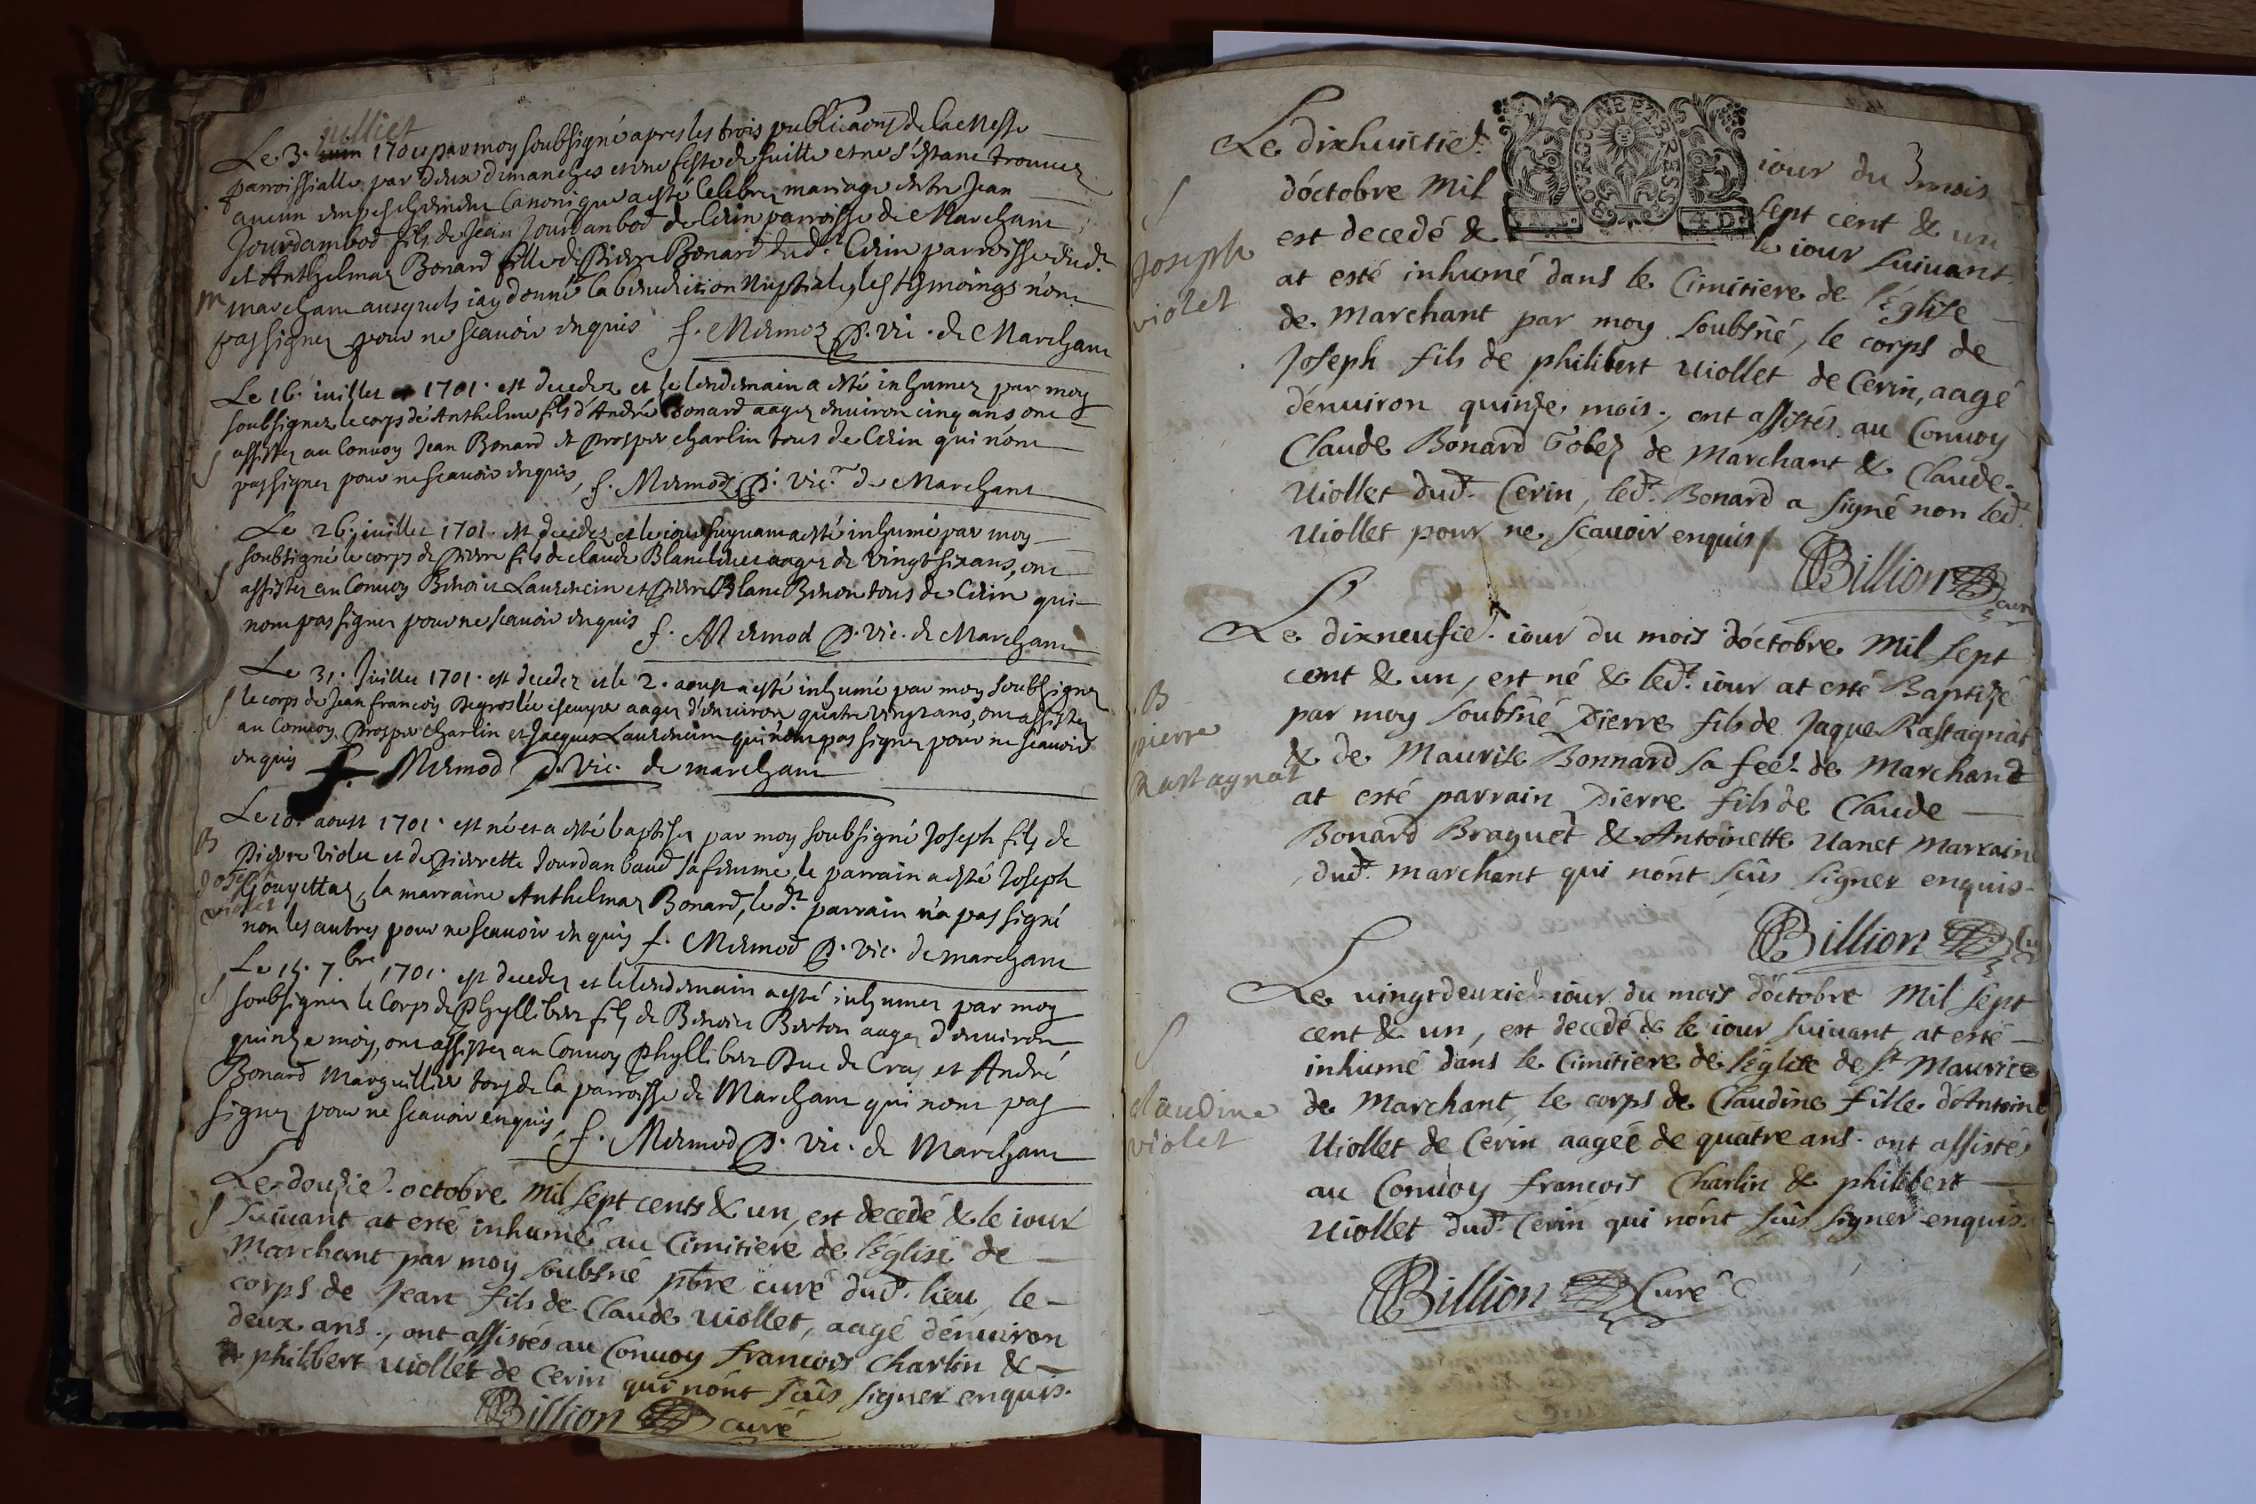 juilliet
Le 3. juin 1701 par moy soubsigné apres les trois publicaons de la Messe
parroissialle par deux dimanches et une feste de suitte et ne s'estant trouuez
aucun empeschement Canonique a esté Celebrez mariage entre Jean
Jourdambod fils de Jean Jourdanbod de Cerin parroisse de Marchant
et Anthelmaz Bonard fille de Pierre Bonard dud.t Cerin parroisse dud.t
M marchant ausquels iay donné la benediction Nuptiale, les tesmoings n'ont
pas signez pour ne scauoir enquis f. Mermoz P. vic. de Marchant
Le 16. iuillet 1701. est decedez et le lendemain a esté inhumez par moy
soubsignez le corps de Anthelme fils d'André Bonard aagez enuiron cinq ans ont
assistez au Conuoy Jean Bonard et Prosper charlin tous de Cerin qui n'ont
S
pas signez pour ne scauoir enquis, f. Mermod P. vic. de Marchant
Le 26. iuillet 1701. est decedez et le iour suyuant a esté inhumé par moy
soubsigné le corps de Pierre fils de claude Blanc aagez de vingt six ans, ont
S
assistez au Conuoy Benoit Laurencin et Pierre Blanc Benon tous de Cerin qui
nont pas signez pour ne scauoir enquis f. Mermod P. vic. de Marchant
Le 31. Juillet 1701. est decedez et le 2. aoust a esté inhumé par moy soubsignez
S le corps de Jean francois Degroslée escuyer aagez d'enuiron quatre vingt ans, ont assistez
au Conuoy Prosper charlin et Jacques Laurencin qui n'ont pas signez pour ne scauoir
enquis f. Mermod P. vic. de marchant
Le 10. aoust 1701. est né et a esté baptisez par moy soubsigné Joseph fils de
B
Pierre Violet et de Pierrette Jourdan baud sa femme, le parrain a esté Joseph
Joseph
Gouyettaz, la marraine Anthelmaz Bonard, le d.t parrain n'a pas signé
violet
non les autres pour ne scauoir enquis f. Mermod P. vic. de marchant
Le 15. 7.bre 1701. est decedez et le lendemain a esté inhumez par moy
S
soubsignez le Corps de Phylliber fils de Benoit Berton aagez d'enuiron
quinze mois, ont assistez au Conuoy Phylliber Duc de Cras et André
Bonard Marguillier tous de la parroisse de Marchant qui nont pas
signez pour ne scauoir enquis, f. Mermod P. vic. de Marchant
Le douzie.e octobre Mil sept cents & un, est decedé & le iour
S
suiuant at esté inhumé au Cimitiere de l'Eglise de
Marchant par moy soubsné pbre curé dud.t lieu, le
corps de Jean fils de Claude Uiollet, aagé dénuiron
deux ans., ont assistés au Conuoy francois Charlin &
philibert Uiollet de Cerin qui nónt scûs signer enquis.
Billion curé
Le dixhuictie.e iour du mois
dóctobre Mil sept cent & un
GEN.
4. D.
S
est decedé & le iour suiuant
Joseph
at esté inhumé dans le Cimitiere de l'Eglise
violet
de Marchant par moy soubsné, le corps de
Joseph fils de philibert Uiollet de Cerin, aagé
dénuiron quinze mois., ont assistés au Conuoy
Claude Bonard Gobez de Marchant & Claude
Uiollet dud.t Cerin, led.t Bonard a signé non led.t
Uiollet pour ne scauoir enquis
Billion curé
Le dixneufie.e iour du mois dóctobre Mil sept
cent & un, est né & led.t iour at esté Baptizé
B
par moy soubsné Pierre fils de Jaque Rastagnat
pierre
& de Maurise Bonnard sa feé. de Marchand
Rastagnat
at esté parrain Pierre fils de Claude
Bonard Braguet & Antoinette Uanet Marraine
dud.t marchant qui nónt scûs signer enquis
Billion
Le uingtdeuxie.e iour du mois dóctobre Mil sept
cent & un, est decedé & le iour suiuant at esté
S
inhumé dans le Cimitiere de l'Eglise de S.t Maurice
Claudine
de Marchant le corps de Claudine fille d'Antoine
violet
Uiollet de Cerin aageé de quatre ans. ont assistés
au Conuoy francois Charlin & philibert
Uiollet dud.t Cerin qui nónt scûs signer enquis.
Billion Curé